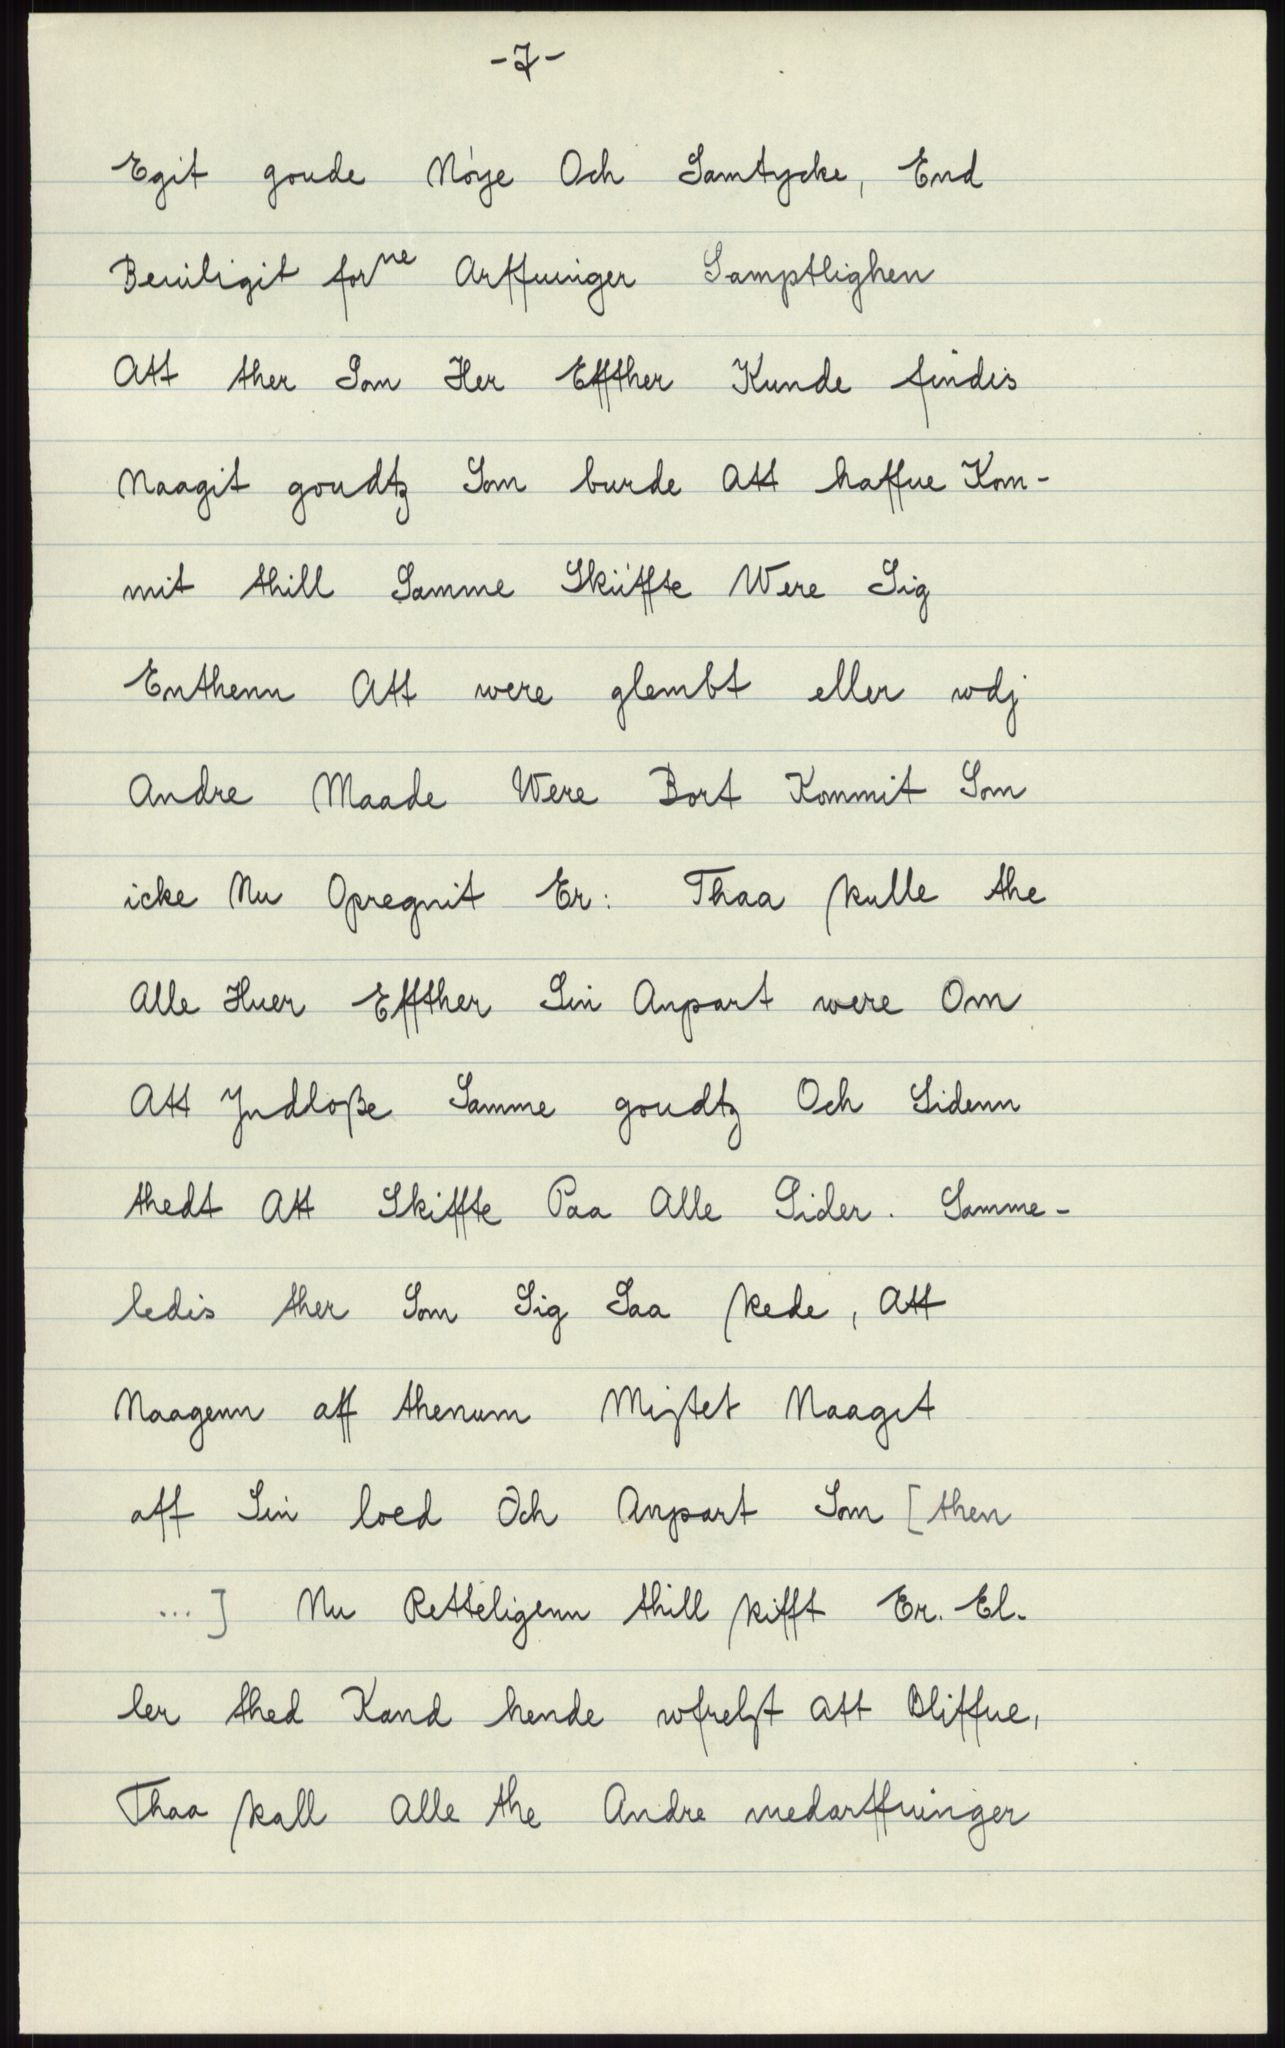 -7-
Egit goude Nóye Och Samtycke, End
Beuiligit forne Arffuinger Samptlighen
Att ther Som Her Effther Kunde findis
Naagit goudtz Som burde Att haffue Kom-
mit thill Samme Skiffte Were Sig
Enthenn Att were glembt eller wdj
Andre Maade Were Bort Kommit Som
icke Nu Opregnit Er: Thaa skulle the
Alle Huer Effther Sin Anpart were Om
Att Jndloße Samme goudtz Och Sidenn
thedt Att Skiffte Paa Alle Sider. Samme-
ledis ther Som Sig Saa skede, Att
Naagenn aff thenum Mistet Naagit
aff Sin loed Och Anpart Som [then
...] Nu Retteligenn thill skifft Er. El-
ler thed Kand hende wfrelst att Bliffue,
Thaa skall Alle the Andre medarffuinger